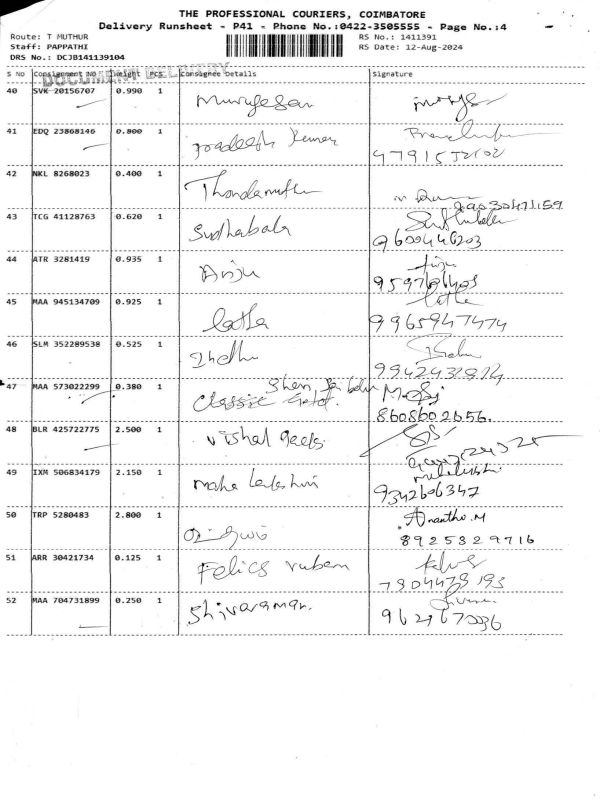 THE PROFESSIONAL COURIERS, COIMBATORE
Delivery Runsheet - P41 - Phone No.:0422-3505555 - Page No.:4
Route: T MUTHUR
RS No.: 1411391
Staff: PAPPATHI
RS Date: 12-Aug-2024
DRS No.: DCJB141139104
DOCUMENT DELIVERY
S NO Consignment NO Weight PCS Consignee Details Signature
40 SVK 20156707 0.990 1 Murugesan
41 EDQ 23868146 0.800 1 Pradeesh Kumar
42 NKL 8268023 0.400 1 Thondamuthu
43 TCG 41128763 0.620 1 Sudhabala
9600446203
44 ATR 3281419 0.935 1 Anju
45 MAA 945134709 0.925 1 Latha Latha
9965947474
46 SLM 352289538 0.525 1
47 MAA 573022299 0.380 1 Classic Gold.
8608602656.
48 BLR 425722775 2.500 1 Vishal
49 IXM 506834179 2.150 1 Maha Lakshmi
9342606347
50 TRP 5280483 2.800 1 Anantho.M
8925829716
51 ARR 30421734 0.125 1 Felics ruben
7904479193
52 MAA 704731899 0.250 1 Shivaraman.